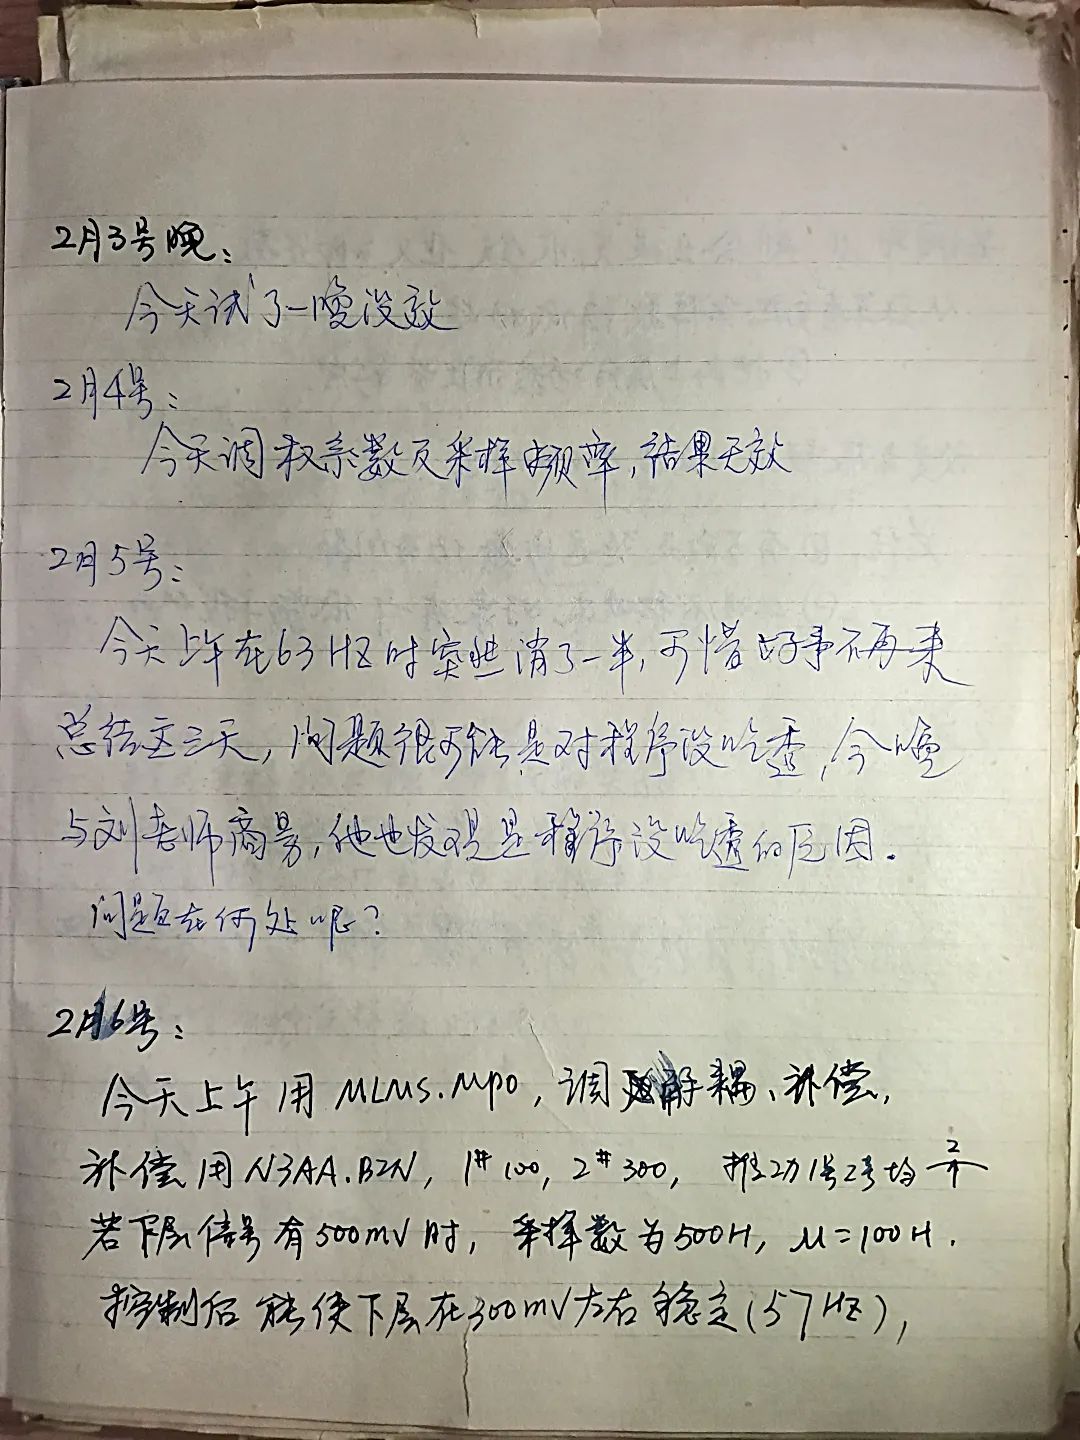 2月3号晚:
今天试了一晚没效
2月4号:
今天调权系数及采样频率,结果无效
2月5号:
今天上午在63HZ时突然消了一半,可惜好事不再来
总结这三天,问题很可能是对程序没吃透,今晚
与刘老师商易,他也发现是程序没吃透的原因.
问题在何处呢?
2月6号:
今天上午用MLMS.MPO,调解耦、补偿,
补偿用N3AA.BZN,1# 100,2# 300,推动1号2号均
若下层信号有500mV时,采样数为500H,μ=100H.
控制后能使下层在300mV左右稳定(57HZ),